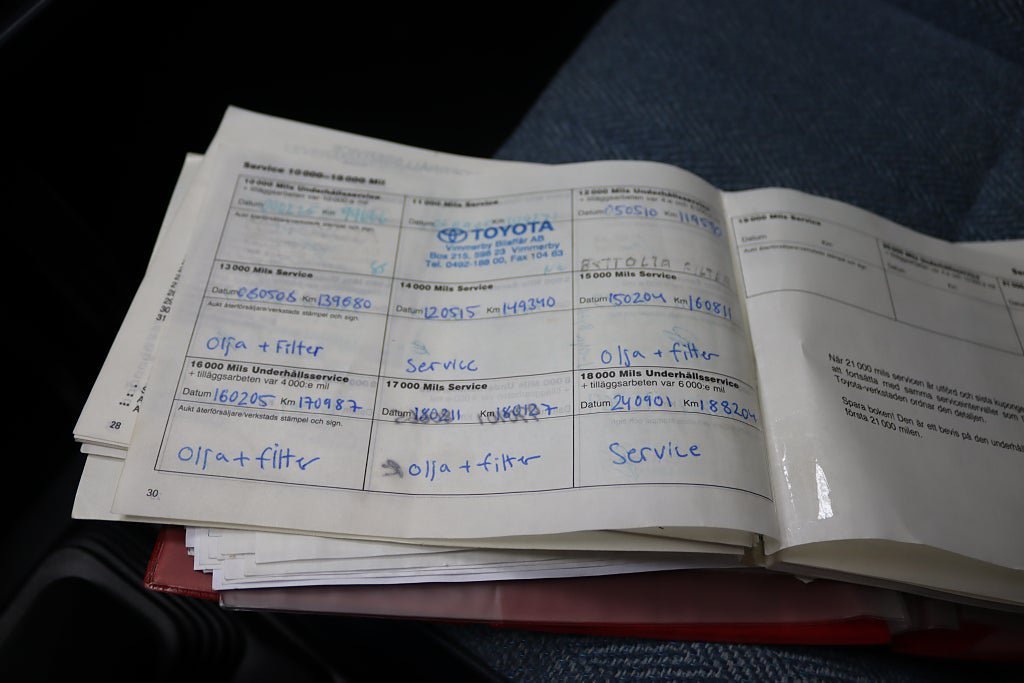 Service 10 000–18 000 Mil
10 000 Mils Underhållsservice
+ tilläggsarbeten var 10 000:e mil
Datum Km
Aukt återförsäljare/verkstads stämpel och sign.
11 000 Mils Service
Datum Km
TOYOTA
Vimmerby Bilaffär AB
Box 215, 598 23 Vimmerby
Tel. 0492-188 00, Fax 104 63
12 000 Mils Underhållsservice
Datum 050510 Km
13 000 Mils Service
Datum 060506 Km 139680
Aukt återförsäljare/verkstads stämpel och sign.
Olja + Filter
14 000 Mils Service
Datum 120515 Km 149340
Service
15 000 Mils Service
Datum 150204 Km 160811
Olja + filter
16 000 Mils Underhållsservice
+ tilläggsarbeten var 4 000:e mil
Datum 160205 Km 170987
Aukt återförsäljare/verkstads stämpel och sign.
Olja + filter
17 000 Mils Service
Datum 180211 Km 180127
Olja + filter
18 000 Mils Underhållsservice
+ tilläggsarbeten var 6 000:e mil
Datum 240901 Km 188204
Service
30
28
31
19 000 Mils Service
Datum Km
Aukt återförsäljare/verkstads stämpel och sign.
När 21 000 mils servicen är utförd och sista kupongen
att fortsätta med samma serviceintervaller som
Toyota-verkstaden ordnar den detaljen.
Spara boken! Den är ett bevis på den underhåll
första 21 000 milen.